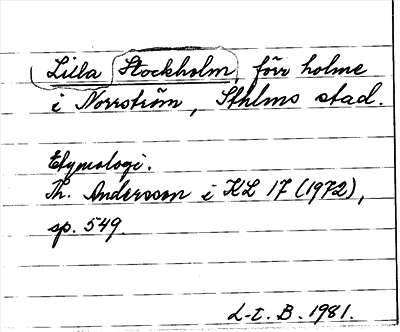 Lilla Stockholm, förr holme
i Norrström, Sthlms stad.
Etymologi.
Th. Andersson i KL 17 (1972),
sp. 549
L-t. B. 1981.